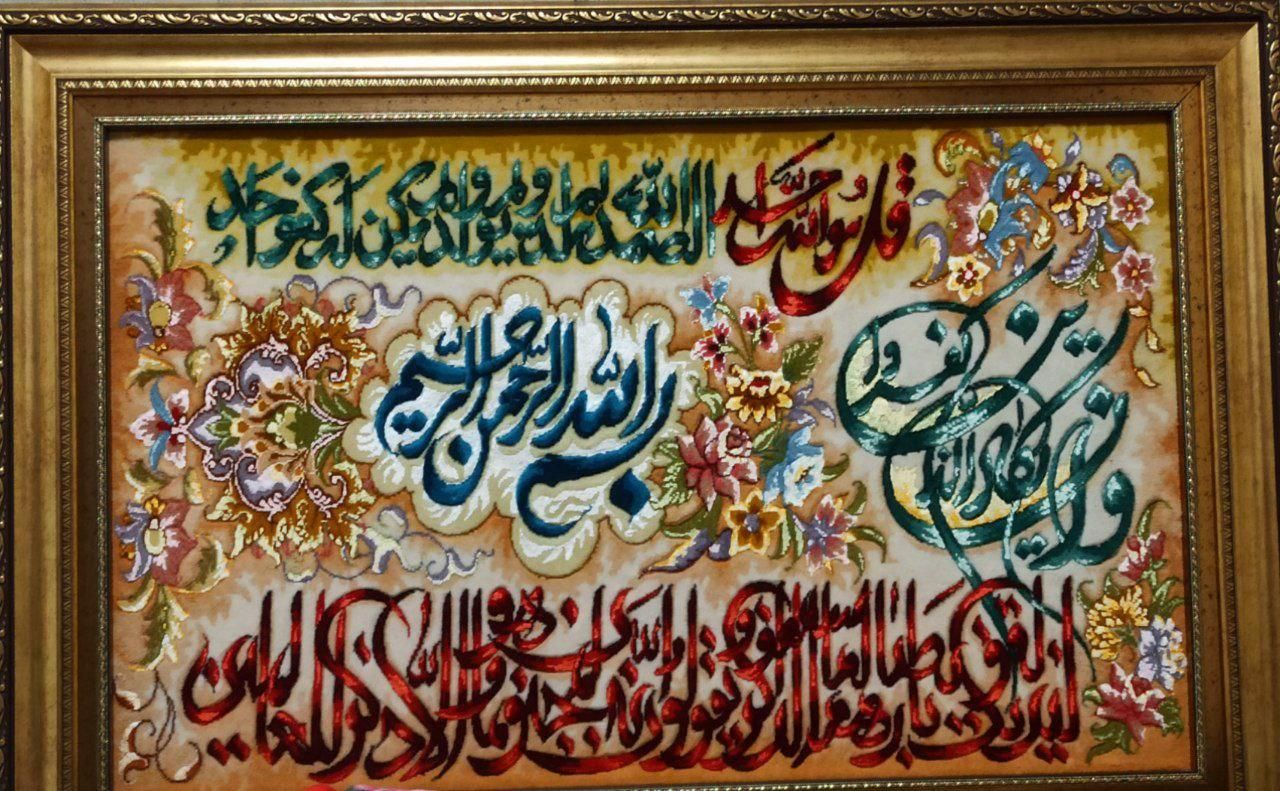 قل هو الله احد
الله الصمد لم يلد ولم يولد ولم يكن له كفوا احد
وان يكاد الذين كفروا
بسم الله الرحمن الرحيم
ليزلقونك بابصارهم لما سمعوا الذكر ويقولون انه لمجنون وما هو الا ذكر للعالمين